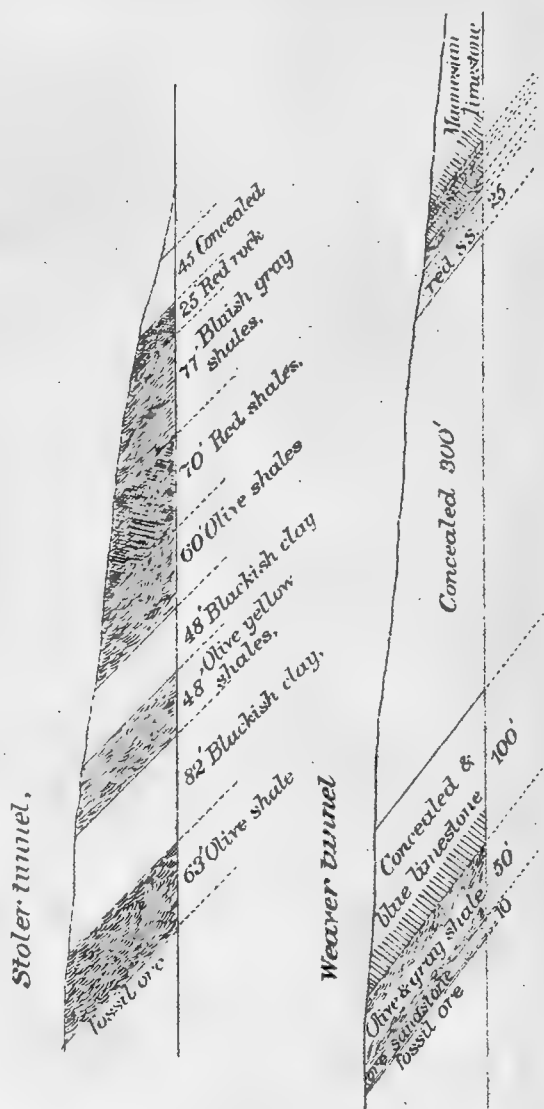 Stoler tunnel,
45 Concealed
25 Red rock
77' Bluish gray
shales.
70' Red shales.
60' Olive shales
48' Blackish clay
48' Olive yellow
shales,
82' Blackish clay,
63' Olive shale
fossil ore
Weaver tunnel
Magnesian
limestone
red s.s. 25
Concealed 300'
Concealed & 100'
blue limestone
Olive & gray shale 50'
ore sandstone 10'
fossil ore